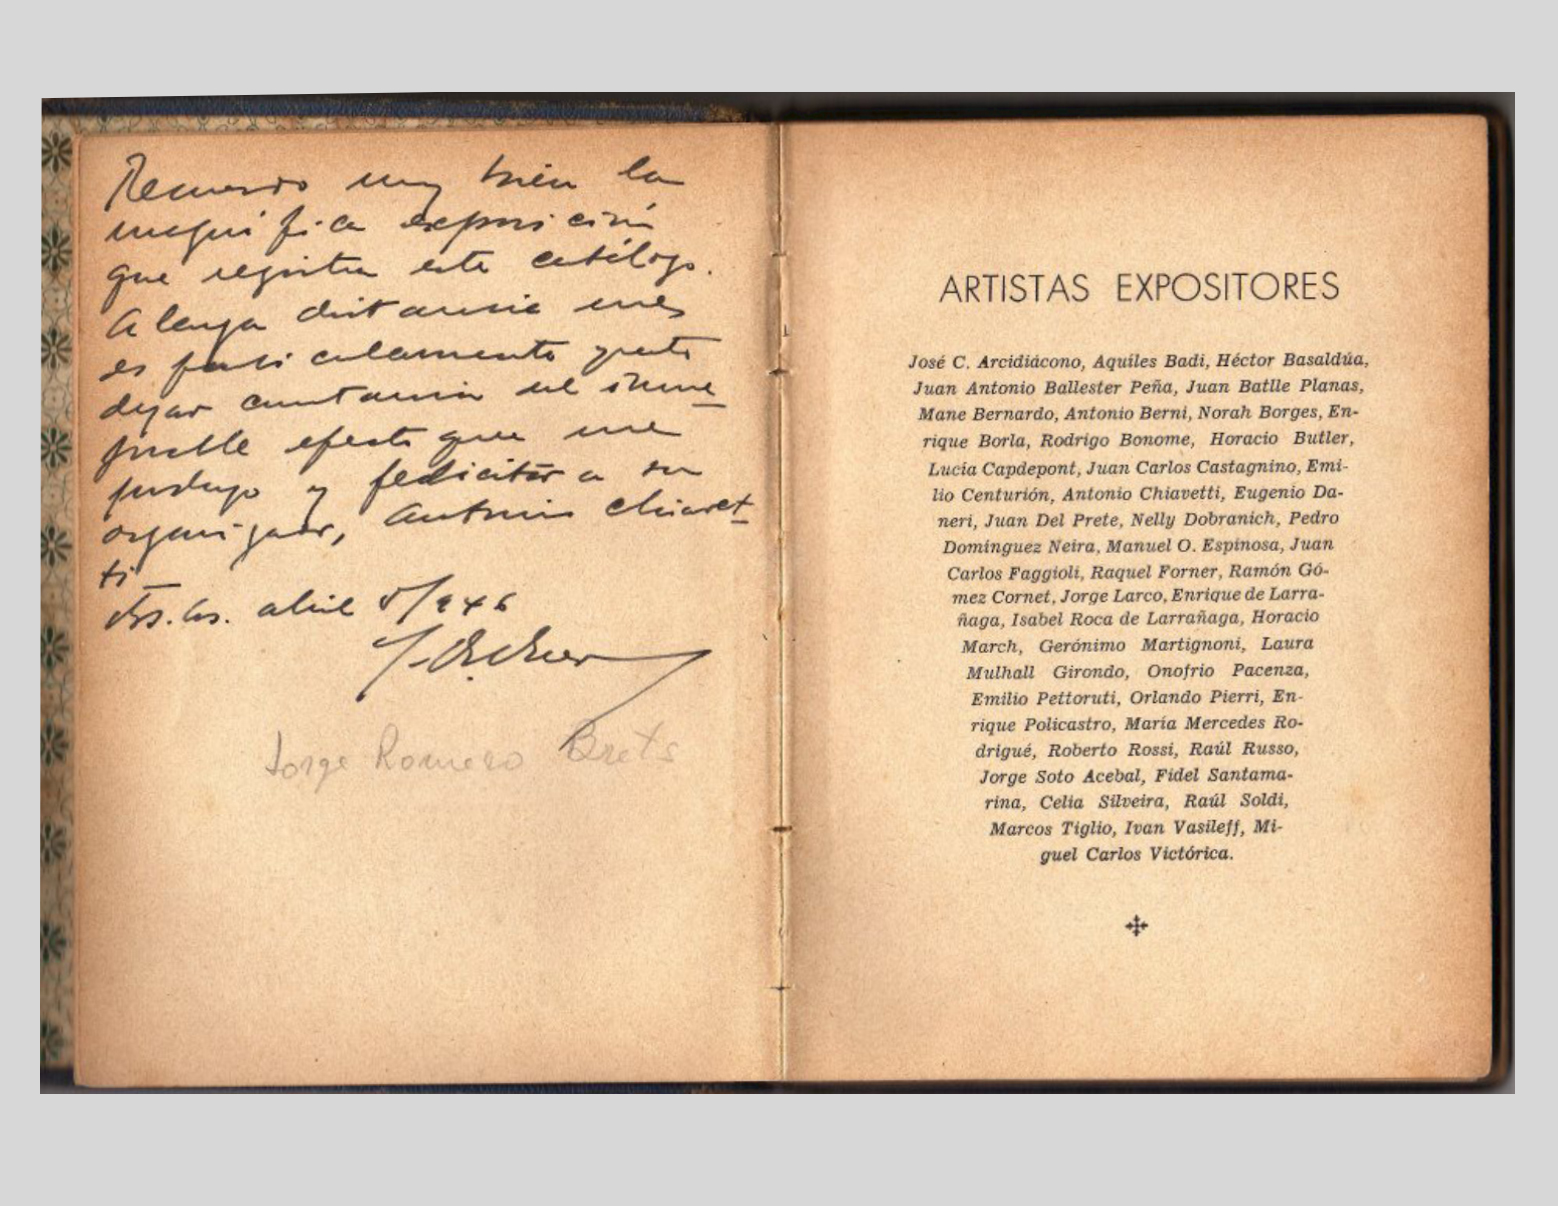 Recuerdo muy bien la
magnífica exposición
que registra este catálogo.
A larga distancia me
es particularmente grato
dejar constancia del inme
jorable efecto que me
produjo y felicitar a su
organizador, Antonio Chiavet
ti
Bs. As. abril 5/946
Jorge Romero Brets
ARTISTAS EXPOSITORES
José C. Arcidiácono, Aquiles Badi, Héctor Basaldúa,
Juan Antonio Ballester Peña, Juan Batlle Planas,
Mane Bernardo, Antonio Berni, Norah Borges, En-
rique Borla, Rodrigo Bonome, Horacio Butler,
Lucía Capdepont, Juan Carlos Castagnino, Emi-
lio Centurión, Antonio Chiavetti, Eugenio Da-
neri, Juan Del Prete, Nelly Dobranich, Pedro
Domínguez Neira, Manuel O. Espinosa, Juan
Carlos Faggioli, Raquel Forner, Ramón Gó-
mez Cornet, Jorge Larco, Enrique de Larra-
ñaga, Isabel Roca de Larrañaga, Horacio
March, Gerónimo Martignoni, Laura
Mulhall Girondo, Onofrio Pacenza,
Emilio Pettoruti, Orlando Pierri, En-
rique Policastro, María Mercedes Ro-
drigué, Roberto Rossi, Raúl Russo,
Jorge Soto Acebal, Fidel Santama-
rina, Celia Silveira, Raúl Soldi,
Marcos Tiglio, Ivan Vasileff, Mi-
guel Carlos Victórica.